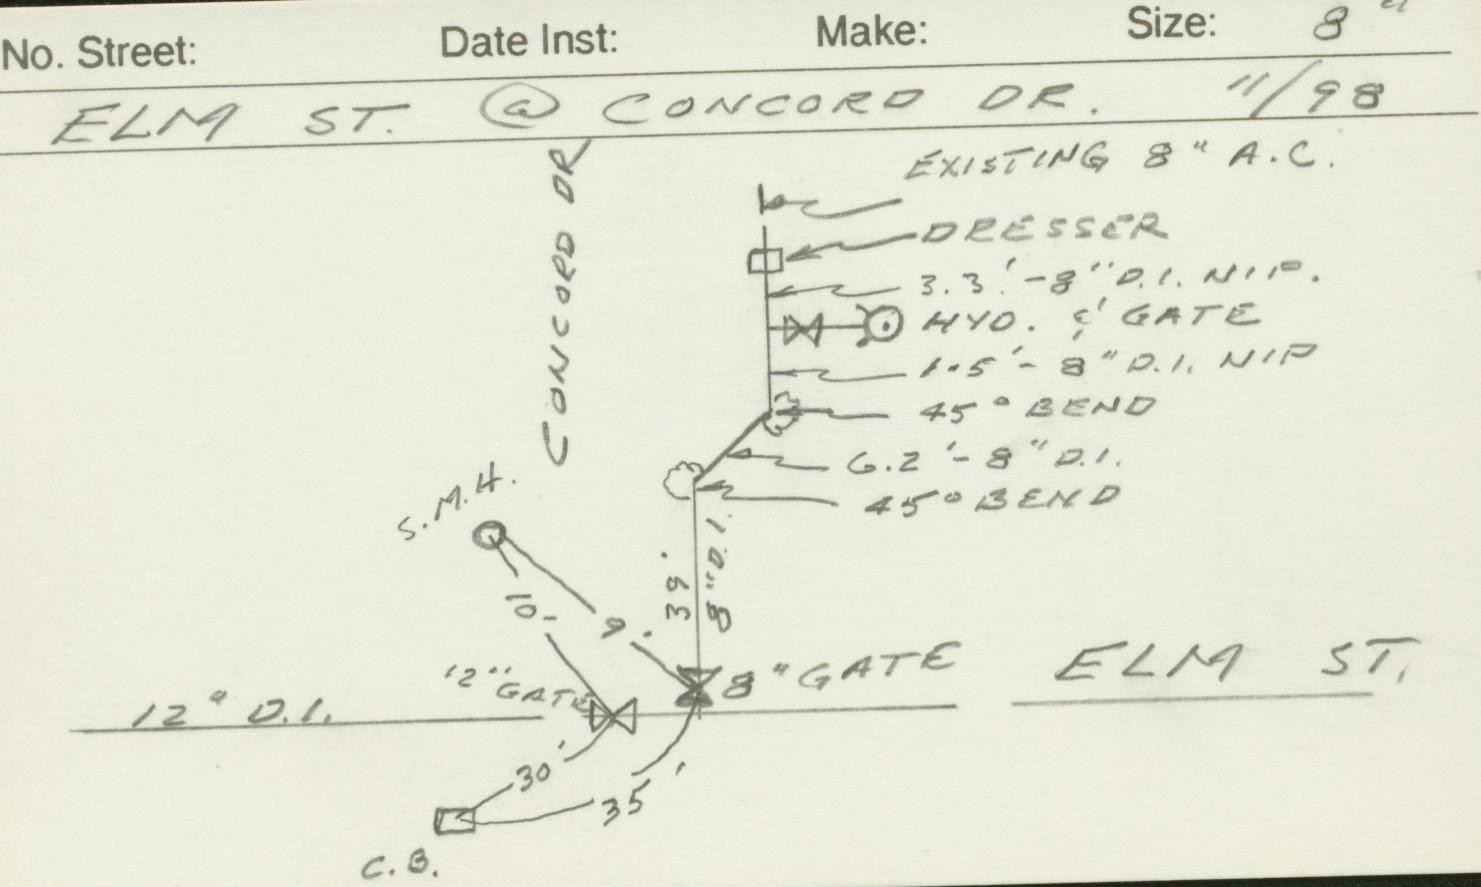 No. Street: Date Inst: Make: Size: 8"
ELM ST. @ CONCORD DR. 11/98
CONCORD DR
EXISTING 8" A.C.
DRESSER
3.3'-8" D.I. NIP.
HYD. & GATE
1.5'-8" D.I. NIP
45° BEND
6.2'-8" D.I.
45° BEND
S.M.H.
39'
8" D.I.
10'
9'
12" GATE
8" GATE
ELM ST.
12" D.I.
30'
35'
C.B.